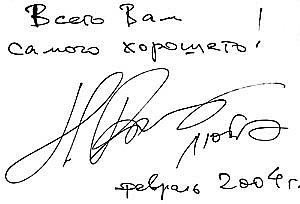 Всего Вам
самого хорошего!
февраль 2004 г.